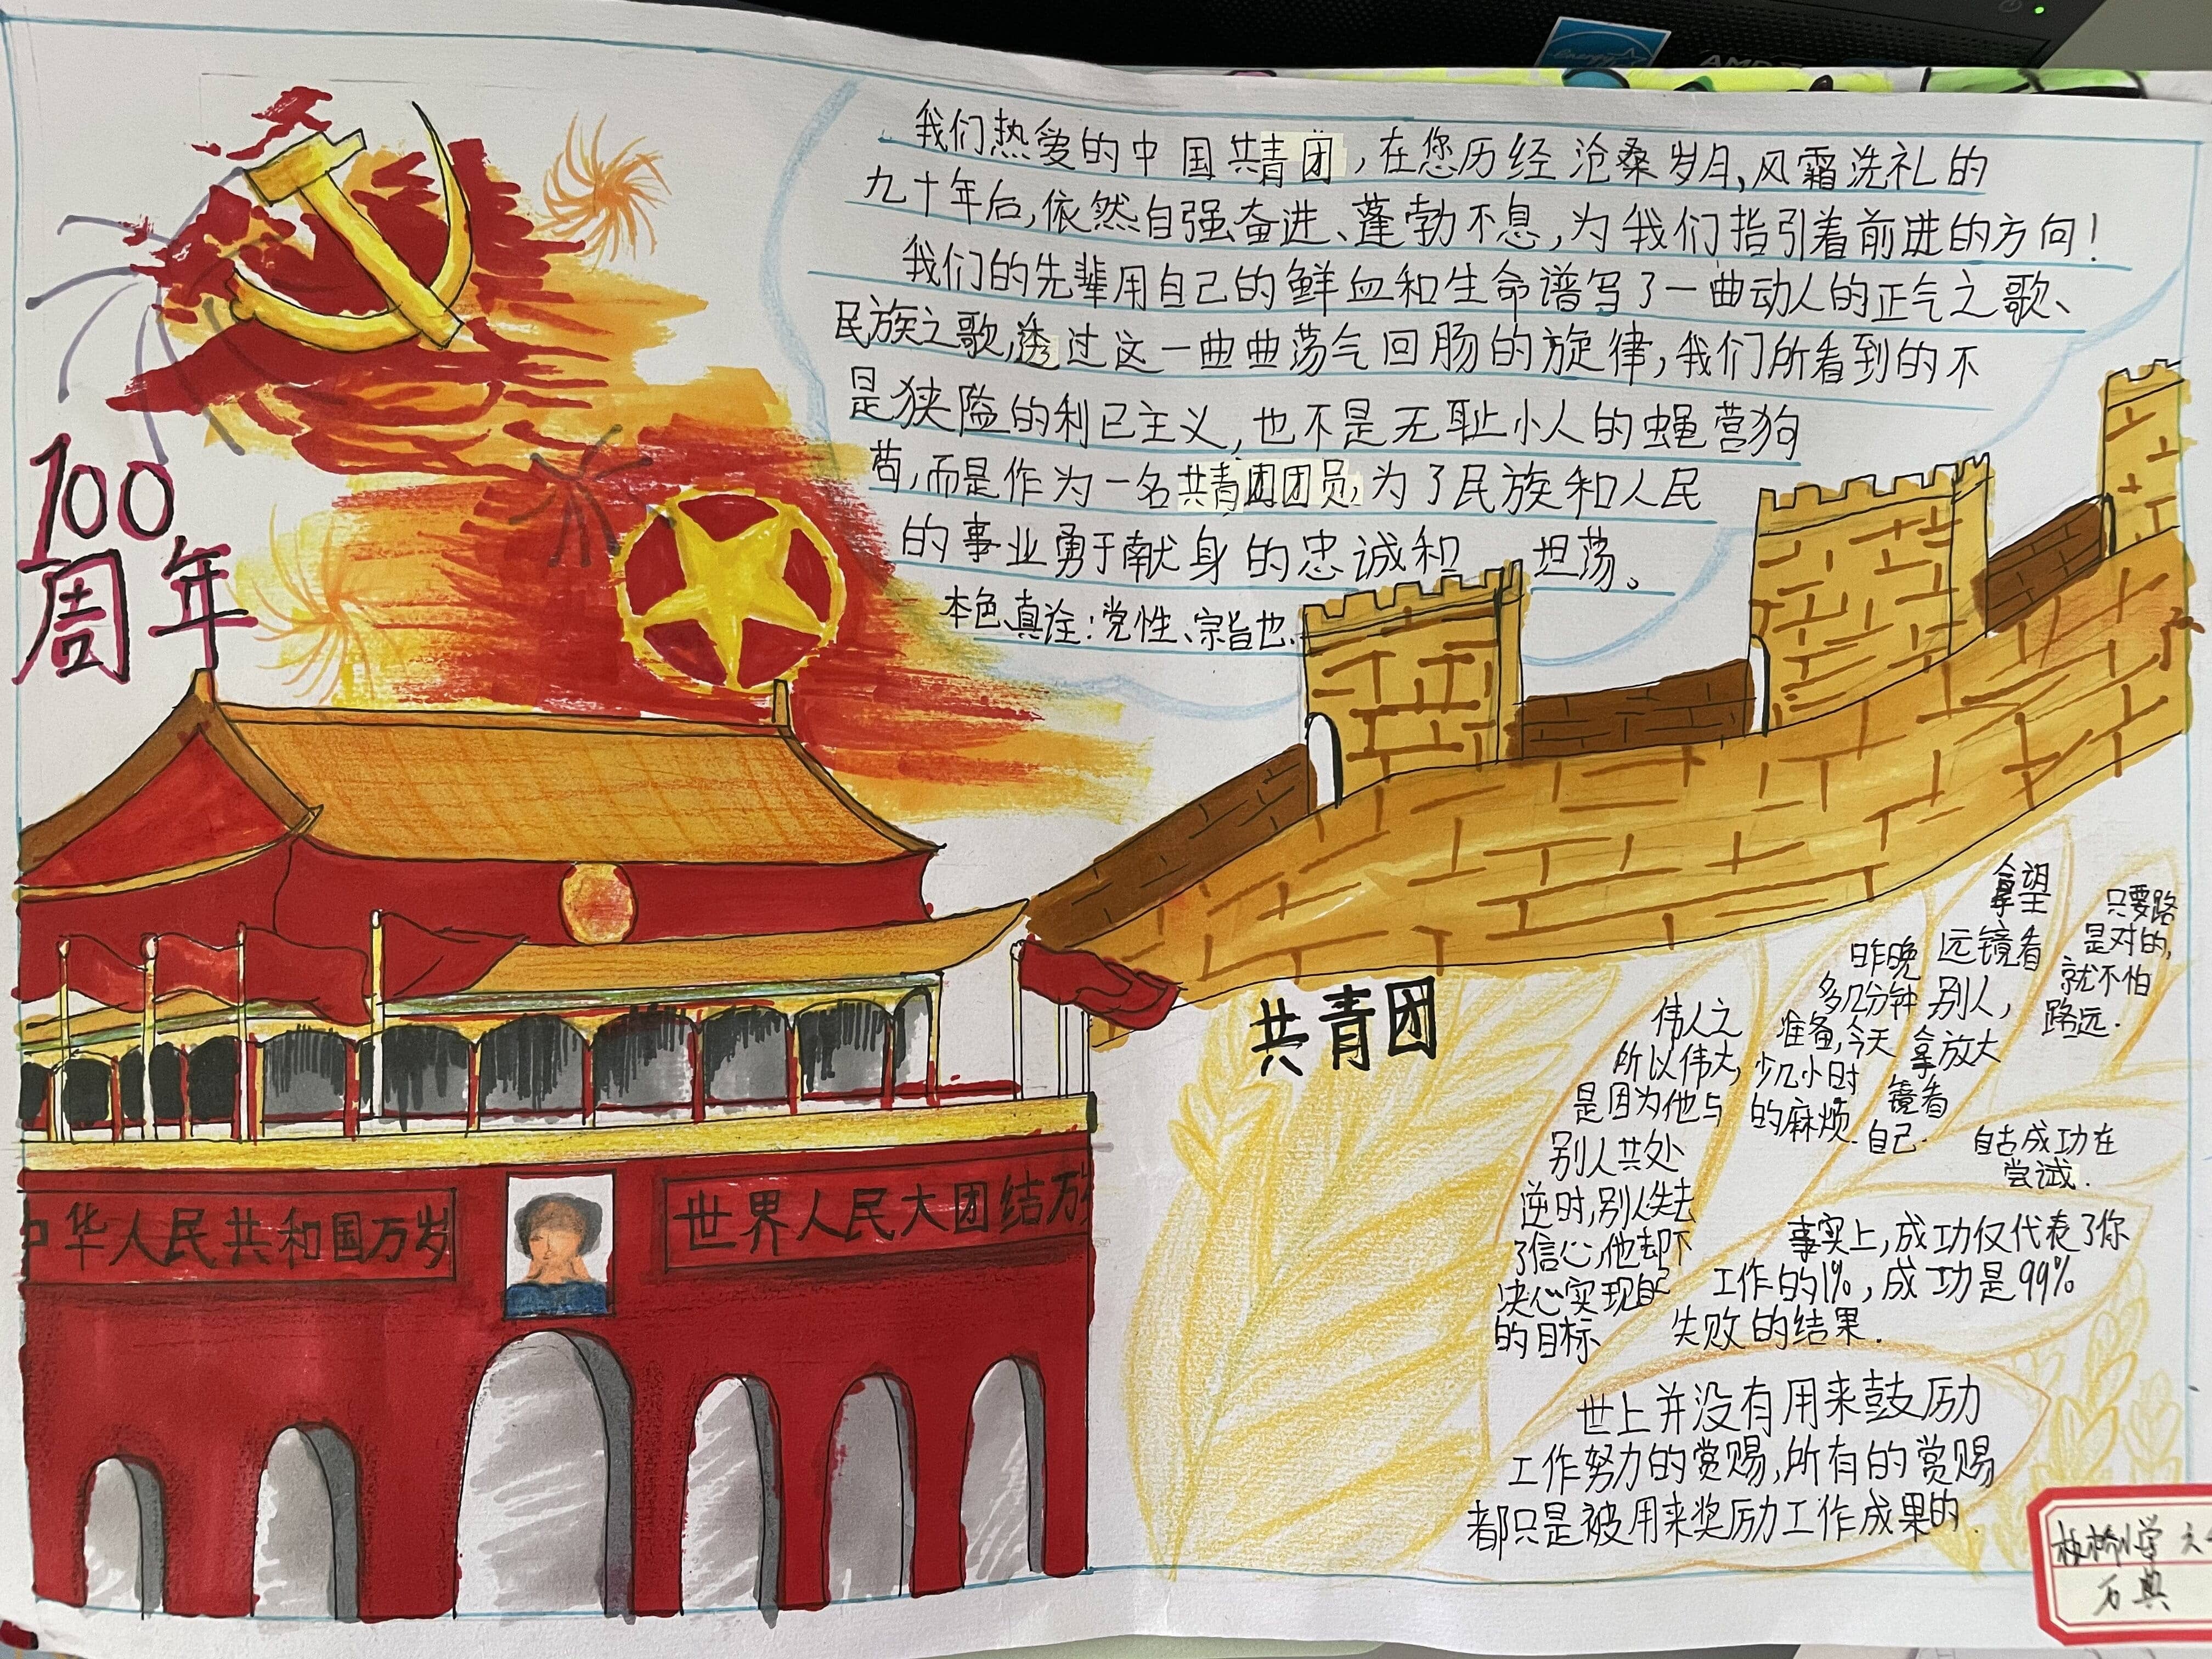 AMD
100
周年
我们热爱的中国共青团，在您历经沧桑岁月，风霜洗礼的
九十年后，依然自强奋进、蓬勃不息，为我们指引着前进的方向！
我们的先辈用自己的鲜血和生命谱写了一曲动人的正气之歌、
民族之歌，透过这一曲曲荡气回肠的旋律，我们所看到的不
是狭隘的利已主义，也不是无耻小人的蝇营狗
苟，而是作为一名共青团团员，为了民族和人民
的事业勇于献身的忠诚和 坦荡。
本色、真诠：党性、宗旨也、
中华人民共和国万岁
世界人民大团结万
共青团
伟人之
所以伟大，
是因为他与
别人共处
逆时，别人失去
了信心，他却下
决心实现自己
的目标、
昨晚
多几分钟
准备，今天
少几小时
的麻烦.
拿望
远镜看
别人，
拿放大
镜看
自己.
只要路
是对的，
就不怕
路远.
自古成功在
尝试.
事实上，成功仅代表了你
工作的1%，成功是99%
失败的结果.
世上并没有用来鼓励
工作努力的赏赐，所有的赏赐
都只是被用来奖励工作成果的.
板桥小学
万典